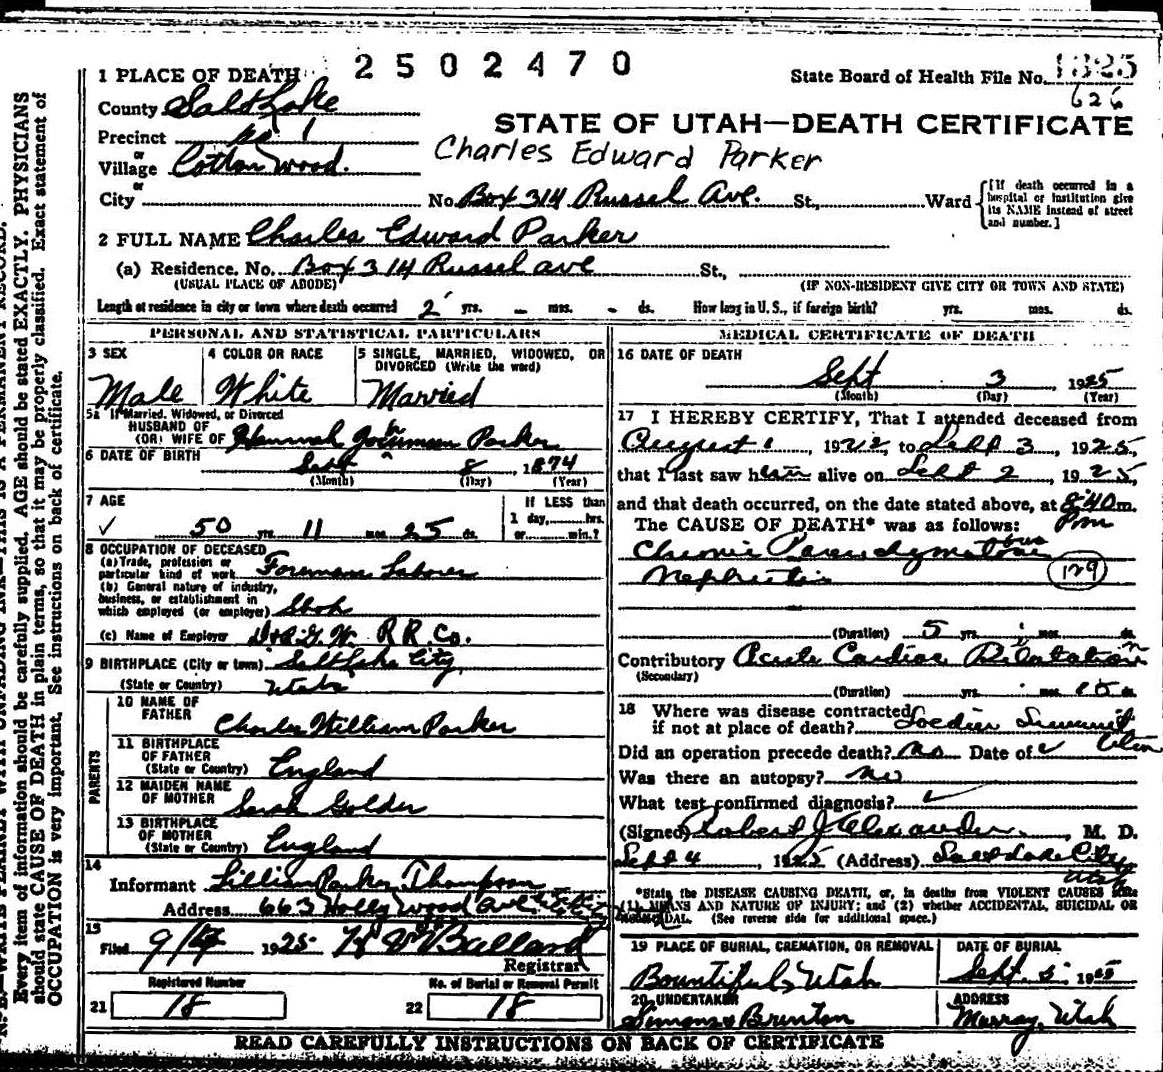 2502470
1 PLACE OF DEATH
State Board of Health File No. 1325
626
County Salt Lake
Precinct No 1
or
Village Cotton Wood.
or
City
STATE OF UTAH—DEATH CERTIFICATE
Charles Edward Parker
No. Box 314 Russel Ave. St., Ward
[If death occurred in a hospital or institution give its NAME instead of street and number.]
2 FULL NAME Charles Edward Parker
(a) Residence. No. Box 314 Russel ave St.,
(USUAL PLACE OF ABODE)
(IF NON-RESIDENT GIVE CITY OR TOWN AND STATE)
Length of residence in city or town where death occurred 2 yrs. - mos. - ds. How long in U. S., if foreign birth? yrs. mos. ds.
PERSONAL AND STATISTICAL PARTICULARS
3 SEX
Male
4 COLOR OR RACE
White
5 SINGLE, MARRIED, WIDOWED, OR DIVORCED (Write the word)
Married
5a If Married, Widowed, or Divorced
HUSBAND OF
(OR) WIFE OF Hannah Parker
6 DATE OF BIRTH Sept 8, 1874
(Month) (Day) (Year)
7 AGE
50 yrs. 11 mos. 25 ds.
If LESS than
1 day, hrs.
or min.?
8 OCCUPATION OF DECEASED
(a) Trade, profession or
particular kind of work Foreman Laborer
(b) General nature of industry,
business, or establishment in
which employed (or employer) Shop
(c) Name of Employer D & R. G. W. R R. Co.
9 BIRTHPLACE (City or town) Salt Lake City
(State or Country) Utah
PARENTS
10 NAME OF
FATHER Charles William Parker
11 BIRTHPLACE
OF FATHER
(State or Country) England
12 MAIDEN NAME
OF MOTHER Sarah Golder
13 BIRTHPLACE
OF MOTHER
(State or Country) England
14
Informant Lillian Parker Thompson
Address 663 Hollywood ave.
15
Filed 9/4 1925 Ballard
Registrar
Registered Number
21 18
No. of Burial or Removal Permit
22 18
MEDICAL CERTIFICATE OF DEATH
16 DATE OF DEATH
Sept 3 1925
(Month) (Day) (Year)
17 I HEREBY CERTIFY, That I attended deceased from
August 1 1922, to Sept 3, 1925,
that I last saw him alive on Sept 2, 1925,
and that death occurred, on the date stated above, at 8:40 m.
Pm
The CAUSE OF DEATH* was as follows:
Chronic Parenchymatous
Nephritis 129
(Duration) 5 yrs. mos. ds.
Contributory Acute Cardiac Dilatation
(Secondary)
(Duration) yrs. mos. 10 ds.
18 Where was disease contracted
if not at place of death? Soldier Summit
Utah
Did an operation precede death? No Date of
Was there an autopsy? No
What test confirmed diagnosis?
(Signed) Robert J Alexander, M. D.
Sept 4, 1925 (Address) Salt Lake City
Utah
*State the DISEASE CAUSING DEATH, or, in deaths from VIOLENT CAUSES state
(1) MEANS AND NATURE OF INJURY; and (2) whether ACCIDENTAL, SUICIDAL OR
HOMICIDAL. (See reverse side for additional space.)
19 PLACE OF BURIAL, CREMATION, OR REMOVAL
Bountiful, Utah
DATE OF BURIAL
Sept. 5 1925
20 UNDERTAKER
Brunton
ADDRESS
Murray, Utah
READ CAREFULLY INSTRUCTIONS ON BACK OF CERTIFICATE
N. B.—WRITE PLAINLY WITH UNFADING INK—THIS IS A PERMANENT RECORD.
Every item of information should be carefully supplied. AGE should be stated EXACTLY. PHYSICIANS
should state CAUSE OF DEATH in plain terms, so that it may be properly classified. Exact statement of
OCCUPATION is very important. See instructions on back of certificate.